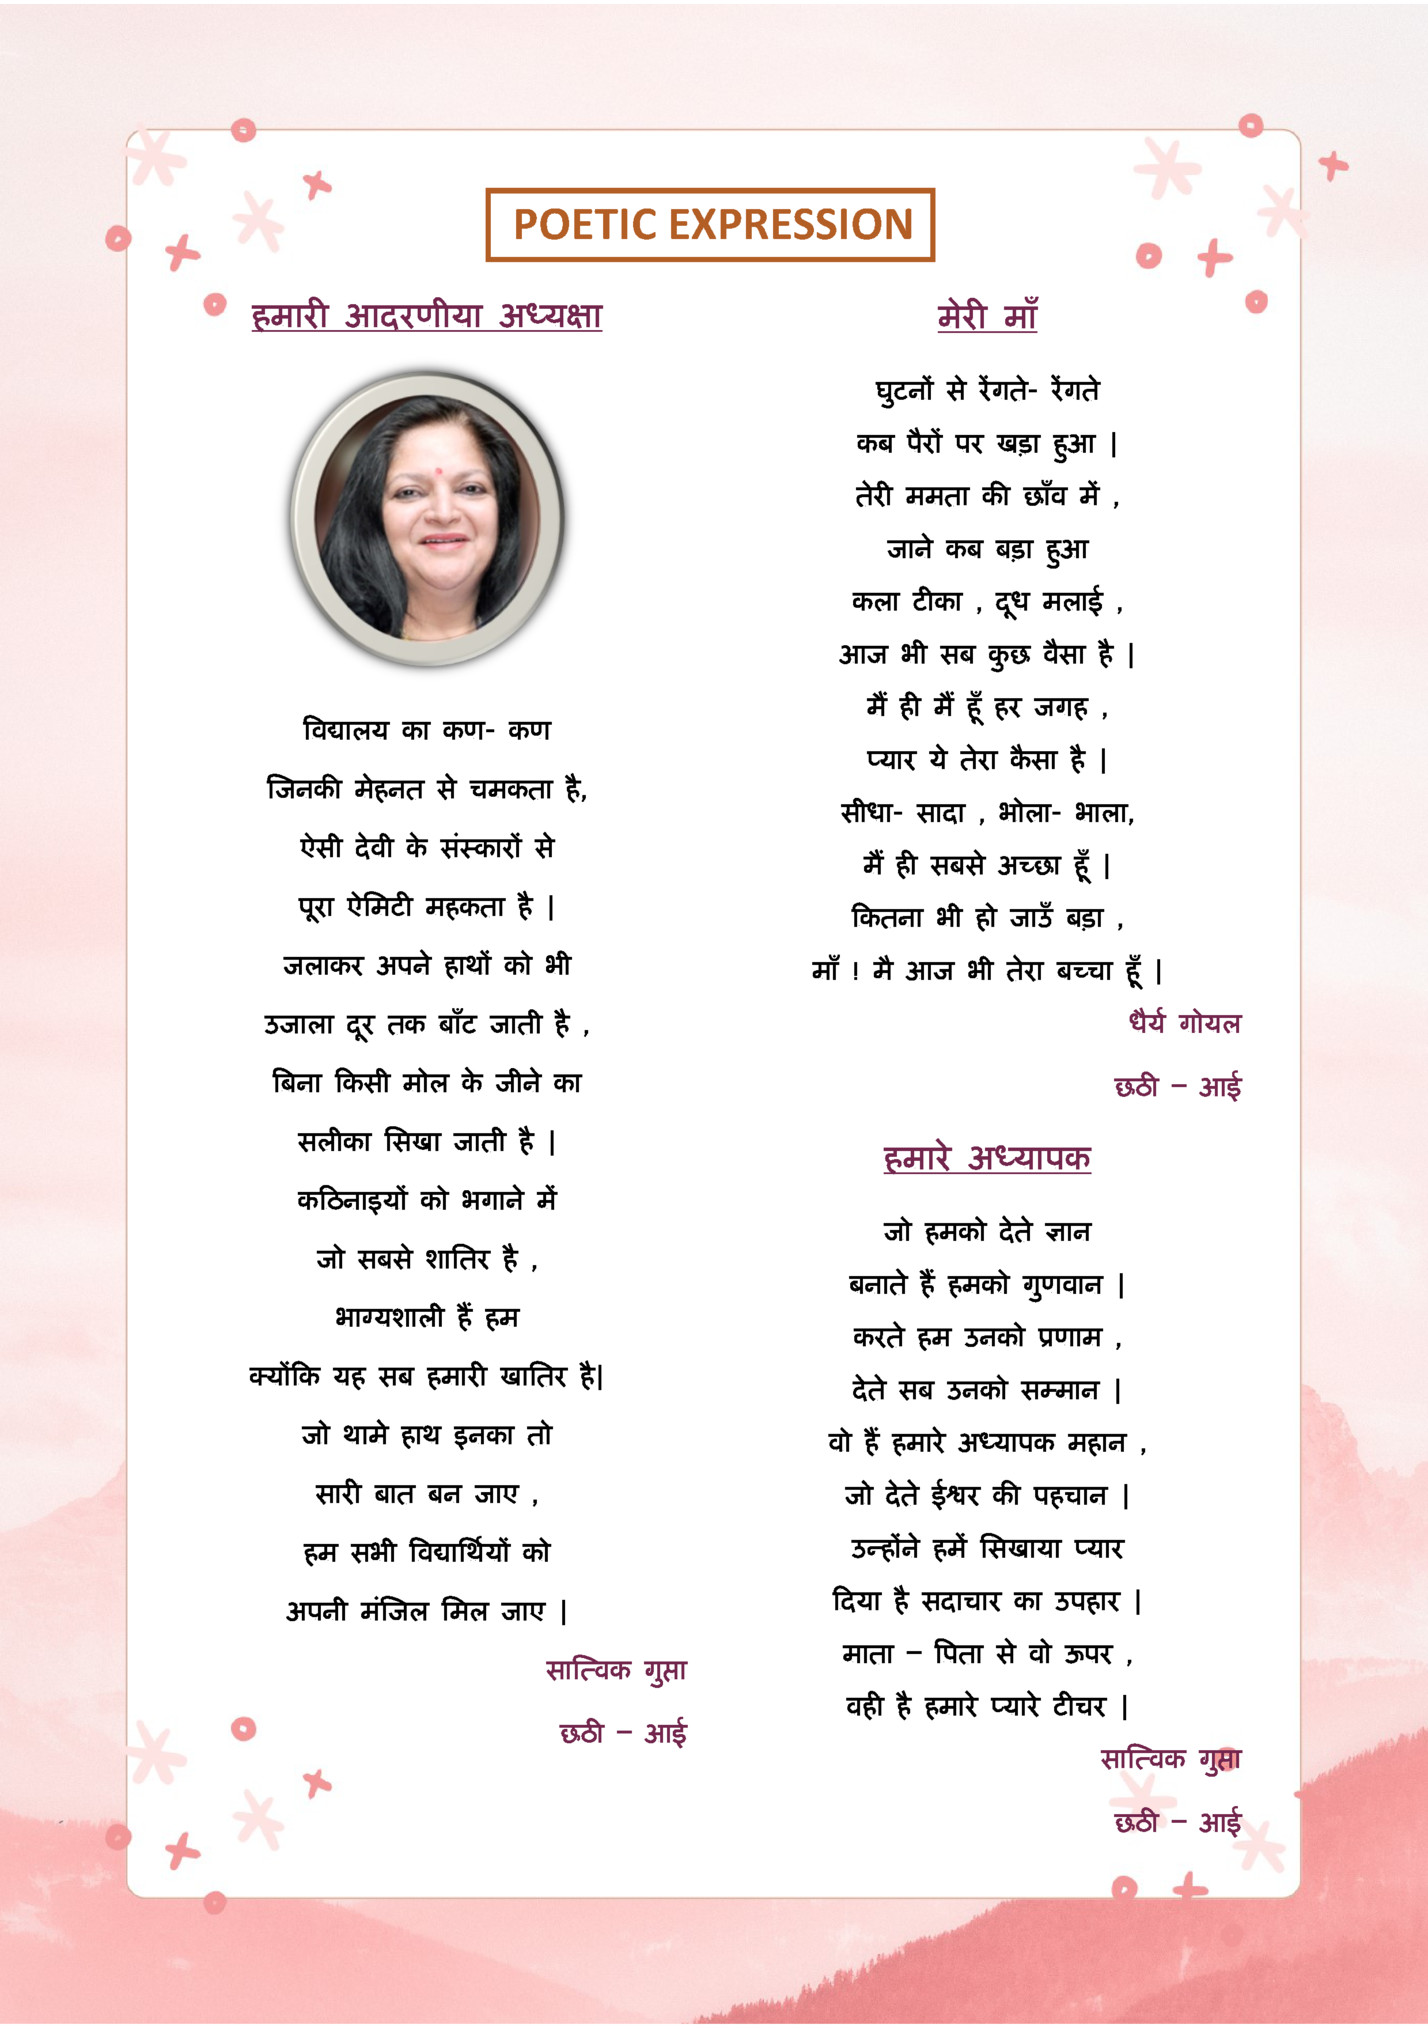 POETIC EXPRESSION
हमारी आदरणीया अध्यक्षा
विद्यालय का कण- कण
जिनकी मेहनत से चमकता है,
ऐसी देवी के संस्कारों से
पूरा ऐमिटी महकता है |
जलाकर अपने हाथों को भी
उजाला दूर तक बाँट जाती है ,
बिना किसी मोल के जीने का
सलीका सिखा जाती है |
कठिनाइयों को भगाने में
जो सबसे शातिर है ,
भाग्यशाली हैं हम
क्योंकि यह सब हमारी खातिर है|
जो थामे हाथ इनका तो
सारी बात बन जाए ,
हम सभी विद्यार्थियों को
अपनी मंजिल मिल जाए |
सात्विक गुप्ता
छठी – आई
मेरी माँ
घुटनों से रेंगते- रेंगते
कब पैरों पर खड़ा हुआ |
तेरी ममता की छाँव में ,
जाने कब बड़ा हुआ
कला टीका , दूध मलाई ,
आज भी सब कुछ वैसा है |
मैं ही मैं हूँ हर जगह ,
प्यार ये तेरा कैसा है |
सीधा- सादा , भोला- भाला,
मैं ही सबसे अच्छा हूँ |
कितना भी हो जाउँ बड़ा ,
माँ ! मै आज भी तेरा बच्चा हूँ |
धैर्य गोयल
छठी – आई
हमारे अध्यापक
जो हमको देते ज्ञान
बनाते हैं हमको गुणवान |
करते हम उनको प्रणाम ,
देते सब उनको सम्मान |
वो हैं हमारे अध्यापक महान ,
जो देते ईश्वर की पहचान |
उन्होंने हमें सिखाया प्यार
दिया है सदाचार का उपहार |
माता – पिता से वो ऊपर ,
वही है हमारे प्यारे टीचर |
सात्विक गुप्ता
छठी – आई